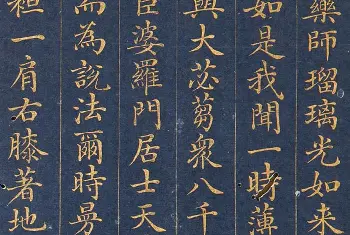 藥師瑠璃光如来
如是我聞一時薄
與大苾蒭衆八千
臣婆羅門居士天
而為說法爾時曼
袒一肩右膝著地